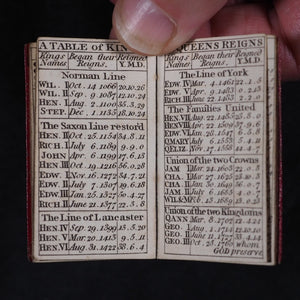 A TABLE of KINGS
Kings Began their Reigned
Names. Reigns. Y. M. D.
Norman Line
WIL. I Oct. 14 1066 20.10.26
WIL. II Sep. 9 1087 12.10.24
HEN. I Aug. 2 1100 35.3.29
STEP. Dec. 1 1135 18.10.24
The Saxon Line restord
HEN. II Oct. 25 1154 34.8.11
RICH. I July 6 1189 9.9.0
JOHN Apr. 6 1199 17.6.13
HEN. III Oct. 19 1216 56.0.28
EDW. I Nov. 16 1272 34.7.21
EDW. II July 7 1307 19.6.18
EDW. III Jan. 25 1327 50.4.27
RICH. II June 21 1377 22.3.8
The Line of Lancaster
HEN. IV Sep. 29 1399 13.5.20
HEN. V Mar. 20 1413 9.5.11
HEN. VI Aug. 31 1422 38.6.4
QUEENS REIGNS
Kings Began their Reigned
Names Reigns. Y. M. D.
The Line of York
EDW. IV Mar. 4 1461
EDW. V Apr. 9 1483
RICH. III June 22 1483
The Families United
HEN. VII Aug. 22 1485
HEN. VIII Apr. 22 1509
EDW. VI Jan. 28 1547
Q. MARY July 6 1553
Q. ELIZ. Nov. 17 1558
Union of the two Crowns
JAM. I Mar. 24 1603
CHA. I Mar. 27 1625
CHA. II Jan. 30 1649
JAM. II Feb. 6 1685
WIL & M
Union of the two Kingdoms
Q. ANN Mar. 8
GEO. I Aug. 1 1714
GEO. II June 11 1727
GEO. III Oct. 25 1760 whom
GOD preserve